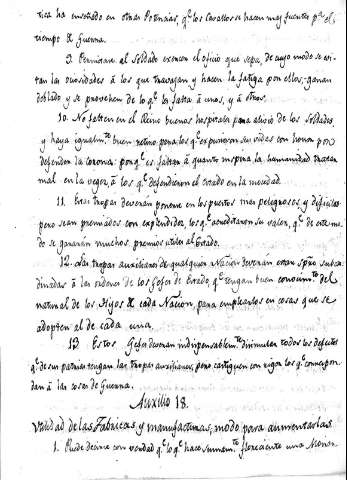 rica ha enseñado en otras Potencias, q.e los Cavallos se hacen mas fuertes p.a el
tiempo de Guerra.
9. Permitase al Soldado exercer el oficio que sepa, de cuyo modo se evi-
tan la ociosidades à los que travajan y hacen la fatiga por ellos, ganan
doblado y se provehen de lo q.e les falta à unos, y à otros.
10. No falten en el Reino buenos hospitales para alivio de los Soldados,
y haya igualm.te buen retiro para los q.e expusieron sus vidas con honor por
defender la corona: porq.e es faltar à quanto inspira la humanidad tratar
mal en la vegez, à los q.e defendieron el Estado en la mocedad.
11. Estas tropas deveràn ponerse en los puestos mas peligrosos y dificiles
pero sean premiados con explendidez, los q.e acreditaron su valor, q.e de este mo-
do se ganaràn muchos premios utiles al Estado.
12. Las tropas auxiliares de qualquier Nacion deveràn estar spre subor-
dinadas à las ordenes de los Gefes de Estado, q.e tengan buen conocim.to del
natural de los Hijos de cada Nacion, para emplearlos en cosas que se
adopten al de cada una.
13. Estos Gefes deveràn indispensablem.te disimular todos los defectos
q.e de sus patrias tengan las tropas auxiliares, pero castiguen con rigor los q.e correspon-
dan à las cosas de Guerra.
Auxilio 18.
Utilidad de las Fabricas, y manufacturas, modo para aumentarlas
1. Puede decirse con verdad q.e lo q.e hace sumam.te floreciente una Monar-